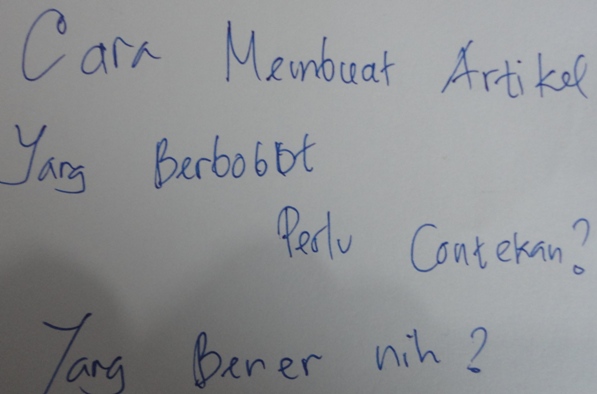 Cara Membuat Artikel
Yang Berbobot
Perlu Contekan?
Yang Bener nih?